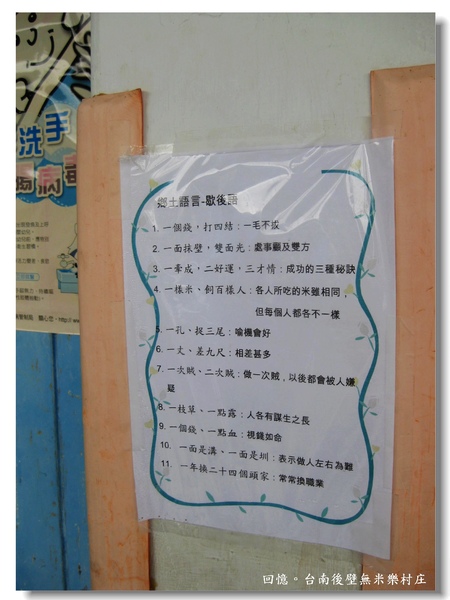 洗手
腸病毒
鄉土語言-歇後語
1. 一個錢，打四結：一毛不拔
2. 一面抹壁，雙面光：處事顧及雙方
3. 一牽成，二好運，三才情：成功的三種秘訣
4. 一樣米、飼百樣人：各人所吃的米雖相同，
但每個人都各不一樣
5. 一孔、掠三尾：喻機會好
6. 一丈、差九尺：相差甚多
7. 一次賊、二次賊：做一次賊，以後都會被人嫌
疑
8. 一枝草、一點露：人各有謀生之長
9. 一個錢、一點血：視錢如命
10. 一面是溝、一面是圳：表示做人左右為難
11. 一年換二十四個頭家：常常換職業
回憶。台南後壁無米樂村庄